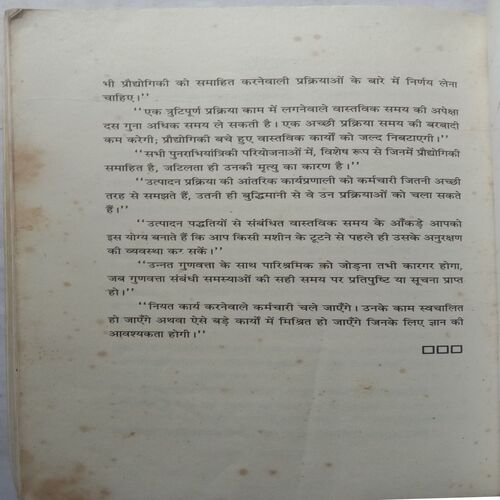 भी प्रौद्योगिकी को समाहित करनेवाली प्रक्रियाओं के बारे में निर्णय लेना
चाहिए।’’
‘‘एक त्रुटिपूर्ण प्रक्रिया काम में लगनेवाले वास्तविक समय की अपेक्षा
दस गुना अधिक समय ले सकती है। एक अच्छी प्रक्रिया समय की बरबादी
कम करेगी; प्रौद्योगिकी बचे हुए वास्तविक कार्यों को जल्द निबटाएगी।’’
‘‘सभी पुनराभियांत्रिकी परियोजनाओं में, विशेष रूप से जिनमें प्रौद्योगिकी
समाहित है, जटिलता ही उनकी मृत्यु का कारण है।’’
‘‘उत्पादन प्रक्रिया की आंतरिक कार्यप्रणाली को कर्मचारी जितनी अच्छी
तरह से समझते हैं, उतनी ही बुद्धिमानी से वे उन प्रक्रियाओं को चला सकते
हैं।’’
‘‘उत्पादन पद्धतियों से संबंधित वास्तविक समय के आँकड़े आपको
इस योग्य बनाते हैं कि आप किसी मशीन के टूटने से पहले ही उसके अनुरक्षण
की व्यवस्था कर सकें।’’
‘‘उन्नत गुणवत्ता के साथ पारिश्रमिक को जोड़ना तभी कारगर होगा,
जब गुणवत्ता संबंधी समस्याओं की सही समय पर प्रतिपुष्टि या सूचना प्राप्त
हो।’’
‘‘नियत कार्य करनेवाले कर्मचारी चले जाएँगे। उनके काम स्वचालित
हो जाएँगे अथवा ऐसे बड़े कार्यों में मिश्रित हो जाएँगे जिनके लिए ज्ञान की
आवश्यकता होगी।’’
□□□